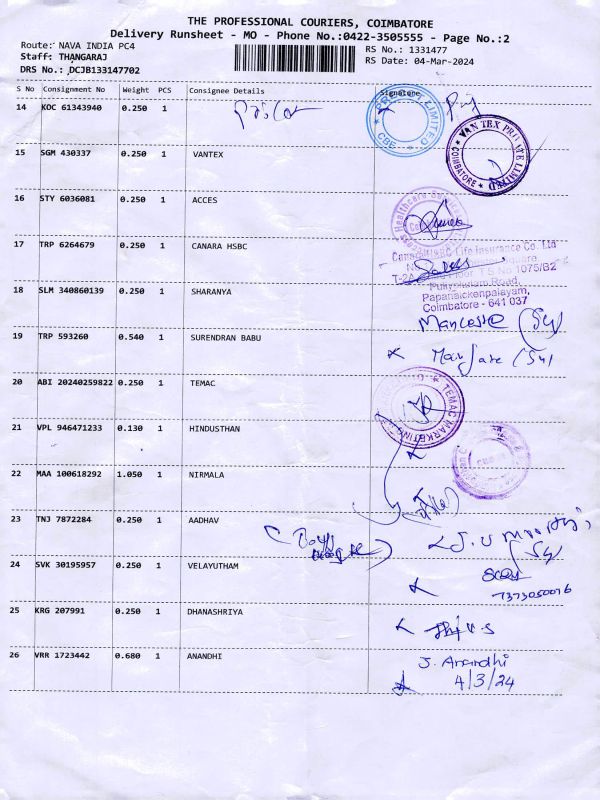 THE PROFESSIONAL COURIERS, COIMBATORE
Delivery Runsheet - MO - Phone No.:0422-3505555 - Page No.:2
Route: NAVA INDIA PC4 RS No.: 1331477
Staff: THANGARAJ RS Date: 04-Mar-2024
DRS No.: DCJB133147702
S No Consignment No Weight PCS Consignee Details Signature
14 KOC 61343940 0.250 1
LIMITED
CBE
VAN TEX PRIVATE LIMITED
COIMBATORE
15 SGM 430337 0.250 1 VANTEX
16 STY 6036081 0.250 1 ACCES
Healthcare
17 TRP 6264679 0.250 1 CANARA HSBC
Life Insurance Co. Ltd
T-2A Floor T S No 1075/B2
Puliyakulam Road,
Papanaickenpalayam,
Coimbatore - 641 037
18 SLM 340860139 0.250 1 SHARANYA
19 TRP 593260 0.540 1 SURENDRAN BABU
20 ABI 20240259822 0.250 1 TEMAC
TEMAC MARKETING
21 VPL 946471233 0.130 1 HINDUSTHAN
22 MAA 100618292 1.050 1 NIRMALA
23 TNJ 7872284 0.250 1 AADHAV
24 SVK 30195957 0.250 1 VELAYUTHAM
7373050076
25 KRG 207991 0.250 1 DHANASHRIYA
26 VRR 1723442 0.680 1 ANANDHI
J. Anandhi
4/3/24